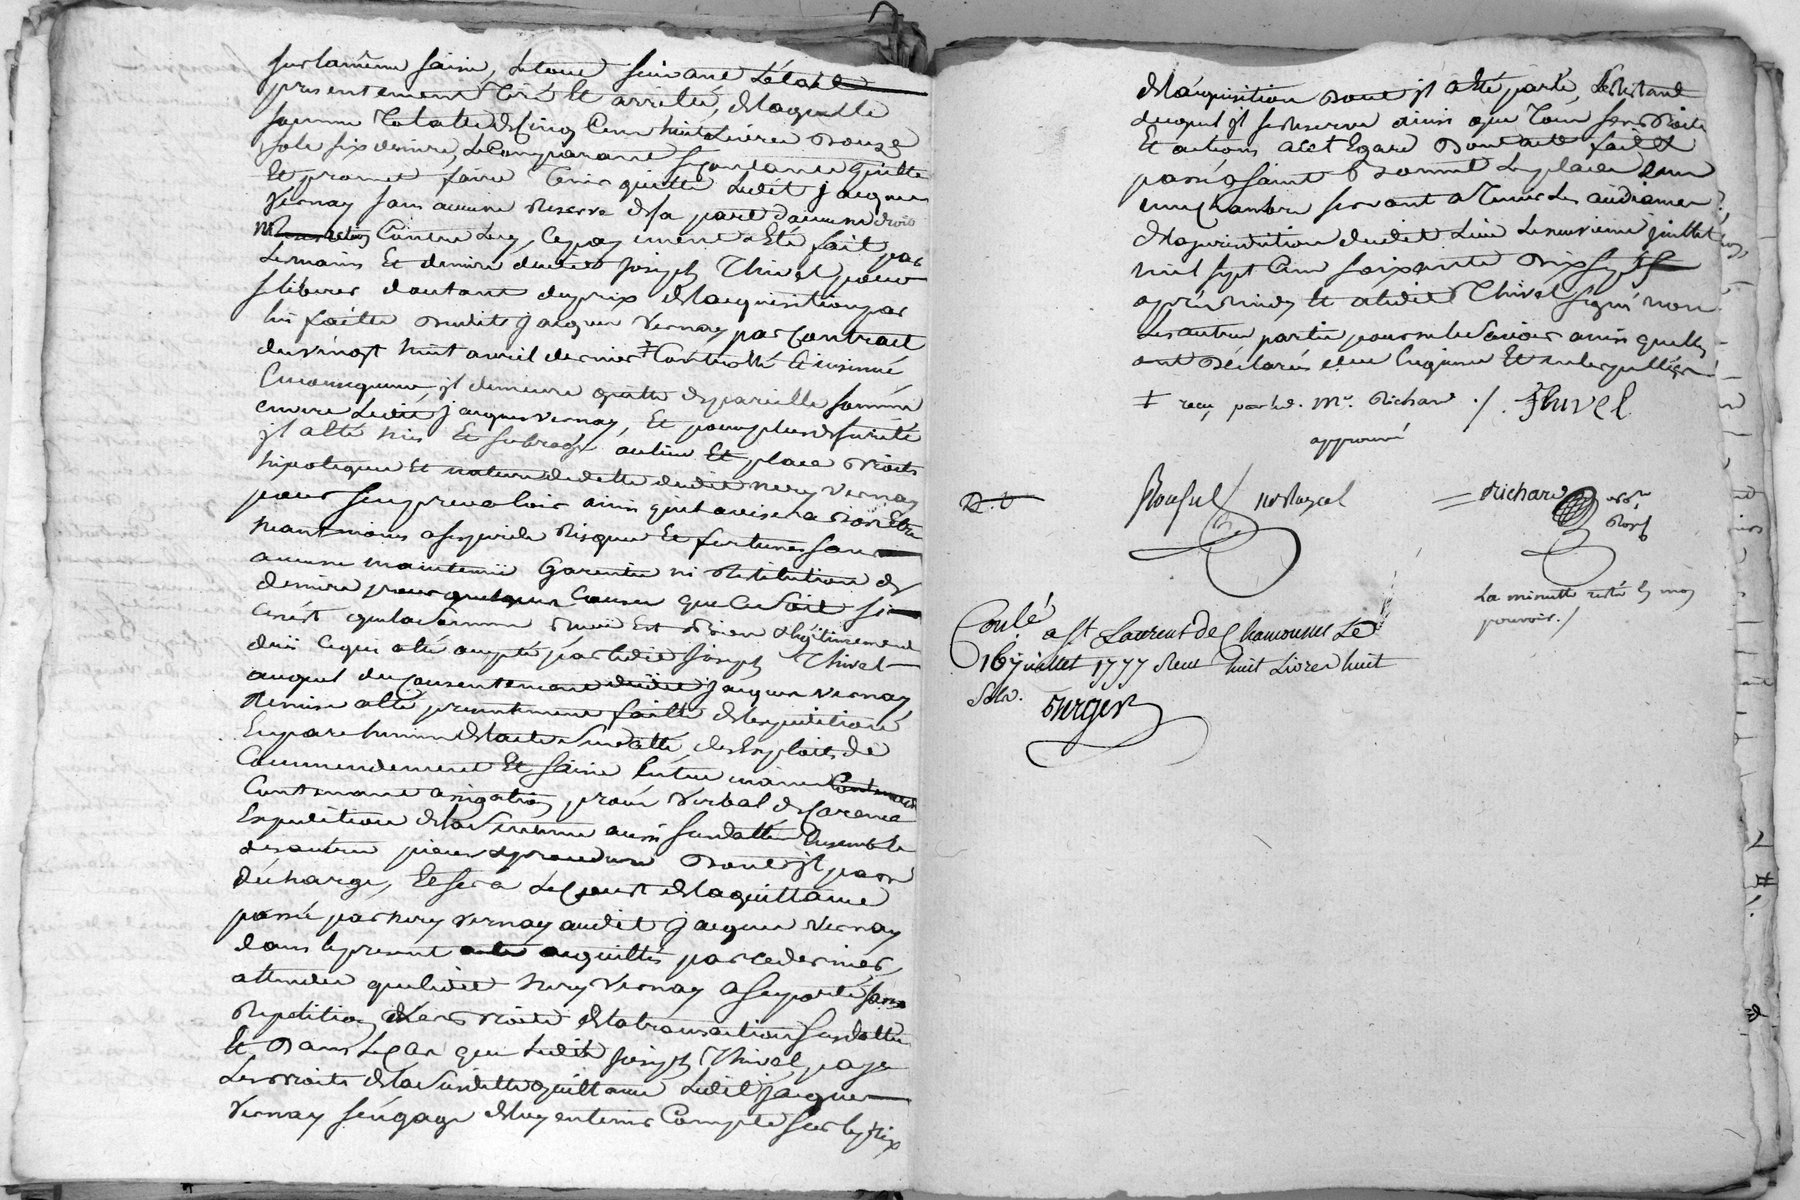 sur la même saisie, le tout suivant l'état
presentement tiré et arrêté, de laquelle
somme totalle de cinq cent huit livres douze
sols six deniers, le comparant se contante quitte
et promet faire tenir quitte ledit jacques
vernay sans aucune reserve de sa part d'aucuns droits
contre luy, ce payement a été fait par
les mains et deniers dudit joseph Thivel pour
se liberer d'autant du prix de l'acquisition par
lui faitte dudit jacques vernay par contract
du vingt huit avril dernier ‡ contrôllé et insinué
en consequence, il demeure quitte de pareille somme
envers ledit jacques vernay, et pour plus de sureté
il a été mis et subrogé au lieu et place droits
hipoteques et nature de dette dudit nery vernay
pour s'en prevaloir ainsi qu'il avisera bon être
neantmoins a ses perils risques et fortunes sans
aucune maintenüe garentie ni restitution de
deniers pour quelques causes que ce soit si
ce n'est que la somme est bien et legitimement
düe ce qui a été accepté par ledit joseph Thivel
auquel du consentement dudit jacques vernay
remise a été presentement faitte de l'expedition
en parchemin de l'acte susdatté, des exploits de
commendement et saisie entre mains
contenant assignation, procès verbal de carence
expedition de la sentence aussi susdattée ensemble
des autres pieces de procedure dont il passe
décharge, et sera le cout de la quittance
passée par nery vernay audit jacques vernay
dans le present acte acquittés par ce dernier,
attendu que ledit nery vernay a supporté sans
repetition les droits de la transaction susdattée
et dans le cas que ledit joseph Thivel paye
les droits de la susditte quittance ledit jacques
vernay s'engage de luy en tenir compte sur le prix
de l'acquisition dont il a été parlé, le restant
duquel il se reserve ainsi que tous ses droits
et actions a cet egard dont acte fait et
passé a saint bonnet les places dans
une chambre servant a tenir les audiances
de la jurisdiction dudit lieu le neuvieme juillet
mil sept cent soixante dix sept
après midy et a ledit Thivel signé non
les autres parties pour ne le savoir ainsi quelles
ont déclarés de ce enquises et interpellées
‡ reçu par led. Me. Richard ./. Thivel
approuvé
Rousul no Royal
= Richard no.re
Royal
La minutte restée en mon
pouvoir./
Conlé a St Laurent de Chamousset Le
16 juillet 1777 Reçu huit Livres huit
Sols. Berger